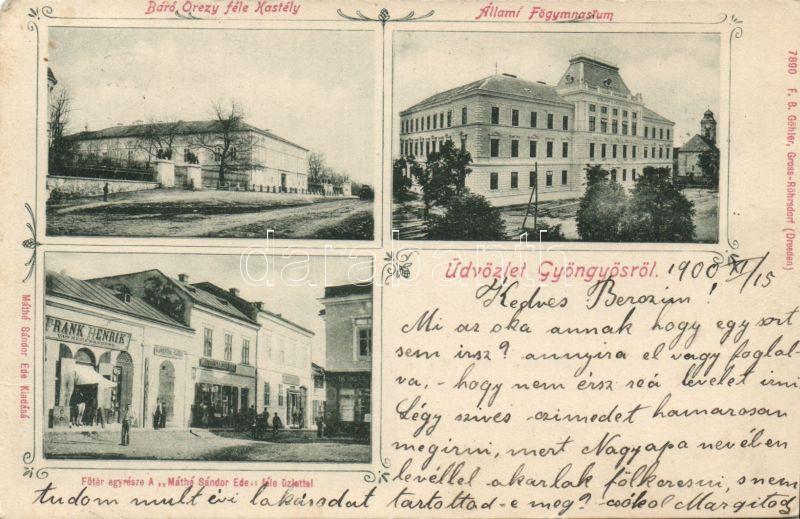 Báró Orczy féle Kastély
Állami Főgymnasium
7890 F. B. Göhler, Gross-Röhrsdorf (Dresden)
darabanth
Üdvözlet Gyöngyösről. 1900 XI/15
FRANK HENRIK
Máthé Sándor Ede Kiadása
Főtér egyrésze A „Máthé Sándor Ede" féle üzlettel
Kedves Berozim!
Mi az oka annak hogy egy sort
sem irsz? annyira el vagy foglal-
va, - hogy nem érsz reá levelet irni
Légy szives czimedet hamarosan
megirni, mert Nagyapa nevében
levéllel akarlak fölkeresni, s nem
tudom mult évi lakásodat tartottad-e meg? csókol Margitod